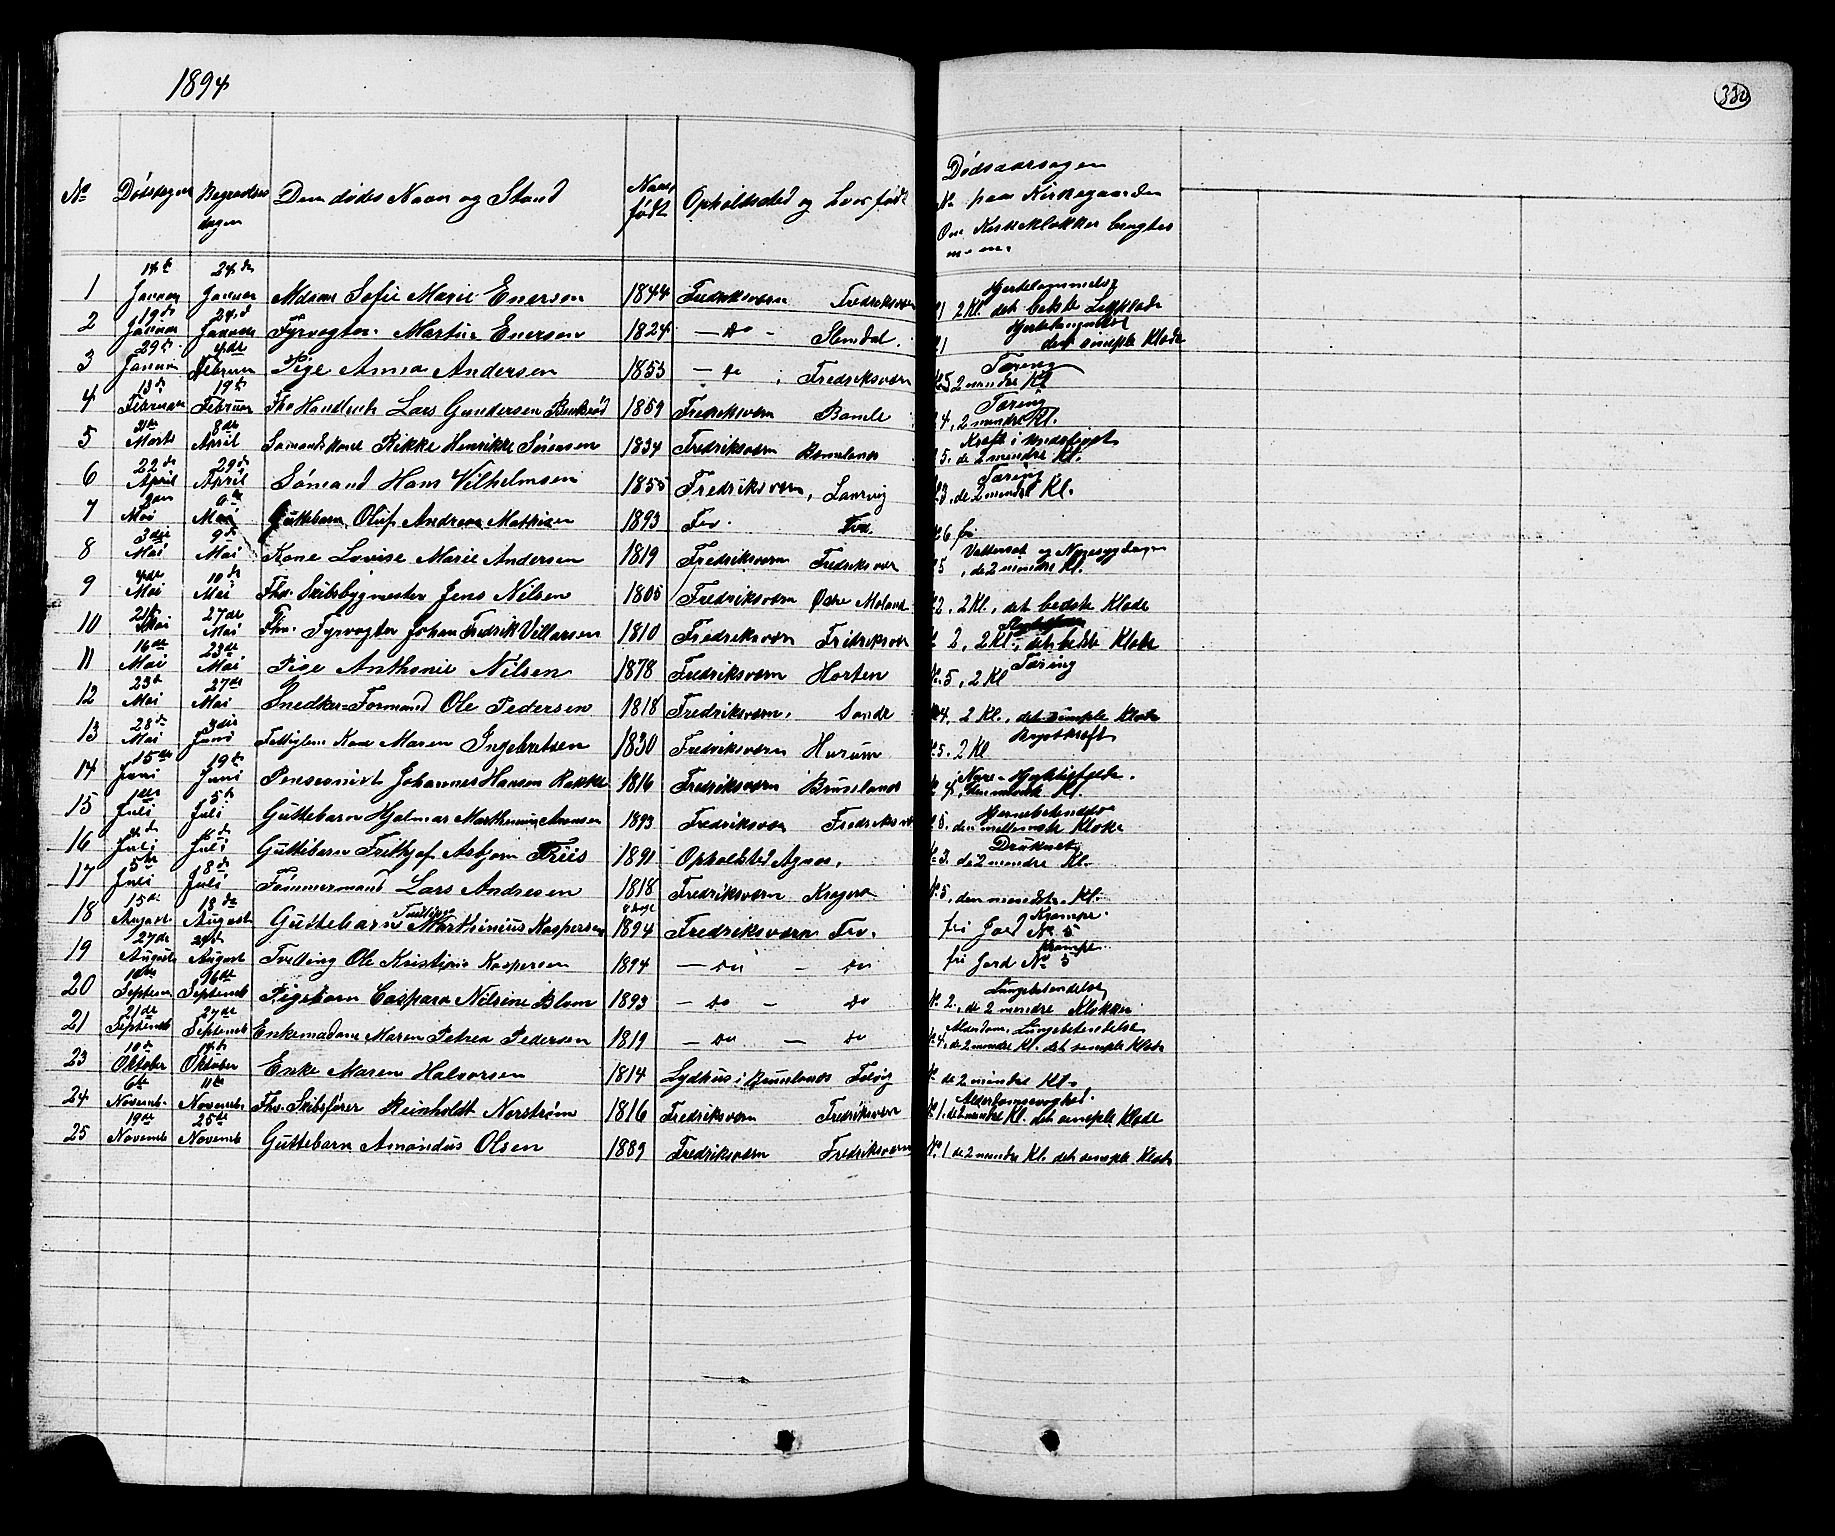 1894
330
No Dødsdagen Begravelsesdagen Den dødes Navn og Stand Naar født Opholdssted og hvor født Dødsaarsagen
No paa Kirkegaarden
Om Kirkeklokker brugtes
m. m.
1 14de Januar 24de Januar Madam Sofie Marie Enersen 1844 Fredriksværn Fredriksværn Hjertelammelse
1 2 Kl. det bedste Ligklæde
2 19de Januar 24de Januar Fyrvogter Martin Enersen 1824 — do — Slemdal. 1 det simple Klæde
3 29de Januar 4de Februar Pige Anna Andersen 1853 — do Fredriksværn Tæring
No 5 2 mindre Kl
4 13de Februar 19de Februar Fhv Handlende Lars Gundersen 1859 Fredriksværn Bamle Tæring
4, 2 mindre Kl.
5 Marts 8de April Sømandskone Rikke Henrikke Sørensen 1834 Fredriksværn Brunelanes Kræft i Underlivet
5. de 2 mindre Kl.
6 22de April 29de April Sømand Hans Vilhelmsen 1855 Fredriksværn, Laurvig Tæring
3, de 2 mindre Kl.
7 2den Mai 6te Mai Guttebarn Oluf Andreas Mathisen 1893 Frv. Frv. 6 fri
8 3die Mai 9de Mai Kone Lovise Marie Andersen 1819 Fredriksværn Fredriksværn Vattersot og Nyresygdom
5, de 2 mindre Kl.
9 4de Mai 10de Mai Fhv. Skibsbygmester Jens Nilsen 1805 Fredriksværn Østre Moland 2, 2 Kl., det bedste Klæde
10 21de Mai 27de Mai Fhv. Fyrvogter Johan Fredrik Villarsen 1810 Fredriksværn Fredriksværn 2, 2 Kl., det bedste Klæde
11 16de Mai 23de Mai Pige Anthonie Nilsen 1878 Fredriksværn Horten Tæring
No. 5, 2 Kl
12 23de Mai 27de Mai Snedker-Formand Ole Pedersen 1818 Fredriksværn, Sande 4, 2 Kl., det simple Klæde
13 28de Mai 3die Juni Kone Maren Ingebretsen 1830 Fredriksværn Hurum Brystkræft
No. 5. 2 Kl
14 15de Juni 19de Juni Pensionist Johannes Hansen Rakke 1816 Fredriksværn Brunelanes Kl.
15 1ste Juli 5te Juli Guttebarn Hjalmar Marthinius 1893 Fredriksværn Fredriksværn Hjernebetændelse
5. den mellemste Klokke
16 Juli Juli Guttebarn Frithjof Asbjørn Friis 1891 Opholdsted Agnes, Druknet
No. 3. de 2 mindre Kl.
17 5te Juli 8de Juli Tømmermand Lars Andresen 1818 Fredriksværn Kragerø No. 5, den mindste Kl.
18 15de August 18de August Guttebarn Tvilling Marthinius Kaspersen 1894 Fredriksværn Frv. Krampe.
fri Jord No 5
19 27de August August Tvilling Ole Kristian Kaspersen 1894 — do — do Krampe
fri Jord No 5
20 Septemb 16de Septemb Pigebarn Caspara Nilsine Blom 1893 — do — do Lungebetændelse
No. 2, de 2 mindre Klokker
21 21de Septemb 27de Septemb Enkemadame Maren Petrea Pedersen 1819 — do — do Alderdom, Lungebetændelse
No. 4, de 2 mindre Kl. det simple Klæde
23 10de Oktober 14de Oktober Enke Maren Halvorsen 1814 Lydhus i Brunelanes Tjølling No de 2 mindre Kl.
24 6te Novemb. 11te Novemb. Fhv. Skibsfører Reinholdt Norstrøm 1816 Fredriksværn Fredriksværn Alderdomssvaghed.
No 1. de 2 mindre Kl. det simple Klæde
25 19de Novemb 25de Novemb Guttebarn Amandus Olsen 1889 Fredriksværn Fredriksværn No. 1 de 2 mindre Kl. det simple Klæde